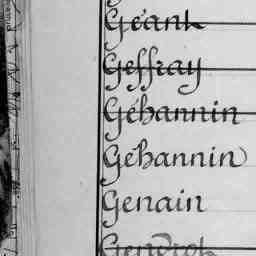 Géant
Geffray
Géhannin
Gehannin
Genain
Gendrot